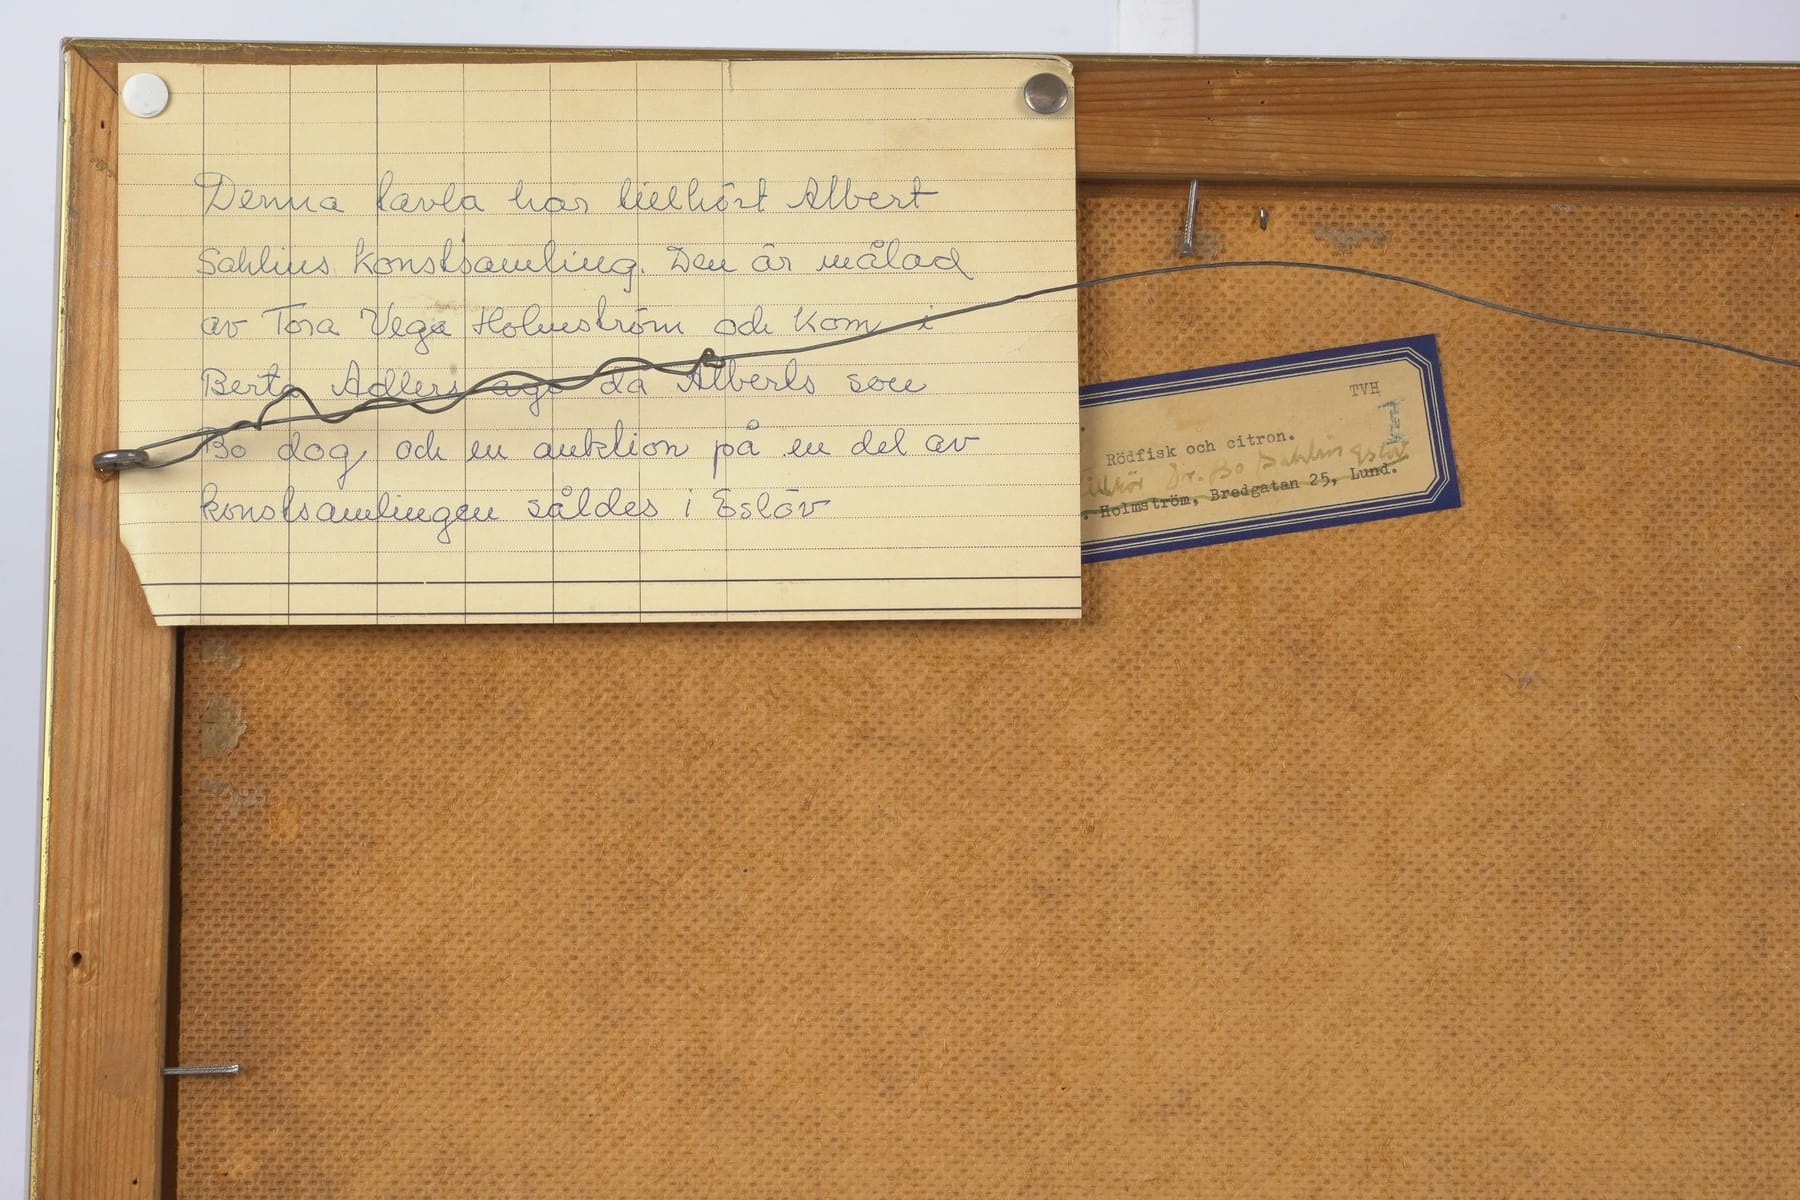 Denna tavla har tillhört Albert
Sahlins konstsamling. Den är målad
av Tora Vega Holmström och kom i
Berta Adlers ägo då Alberts son
Bo dog och en auktion på en del av
konstsamlingen såldes i Eslöv
TVH
I
Rödfisk och citron.
Dr. Bo Sahlin
. Holmström, Bredgatan 25, Lund.